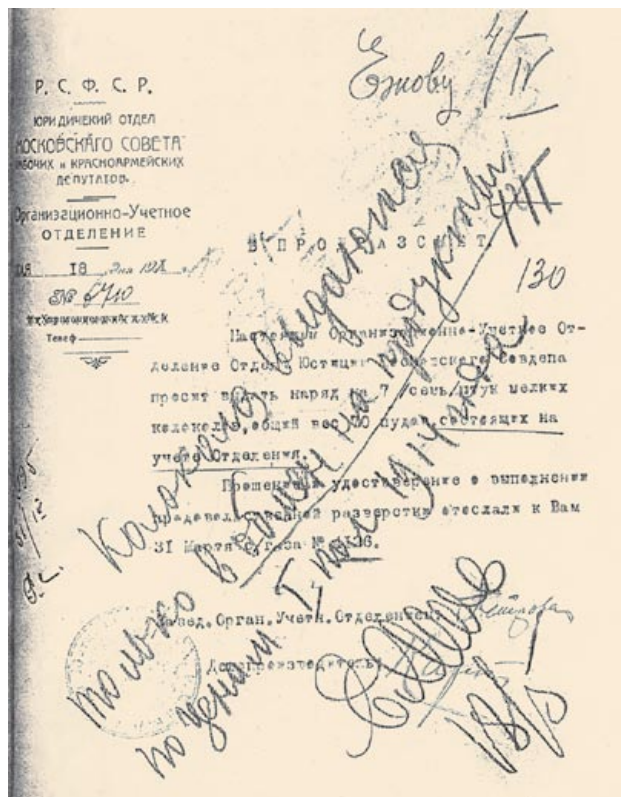 Р. С. Ф. С. Р.
ЮРИДИЧЕКИЙ ОТДЕЛ
МОСКОВСКАГО СОВЕТА
РАБОЧИХ и КРАСНОАРМЕЙСКИХ
ДЕПУТАТОВ.
Организационно-Учетное
ОТДЕЛЕНИЕ
18
№ 6710
Телеф
Ежову
4/IV
130
Настоящим Организационно-Учетное От-
деление Отдела Юстиции Совдепа
просит выдать наряд на 7 /семь/ штук мелких
колоколов, общий вес 70 пудов, состоящих на
учете Отделения.
удостоверение о выполнении
разверстки отослали к Вам
31 Марта с/г за №
Завед. Орган. Учетн. Отделением
Делопроизводитель
Колокола выдаются
только в обмен на продукты
по ценам I пол 1914 года